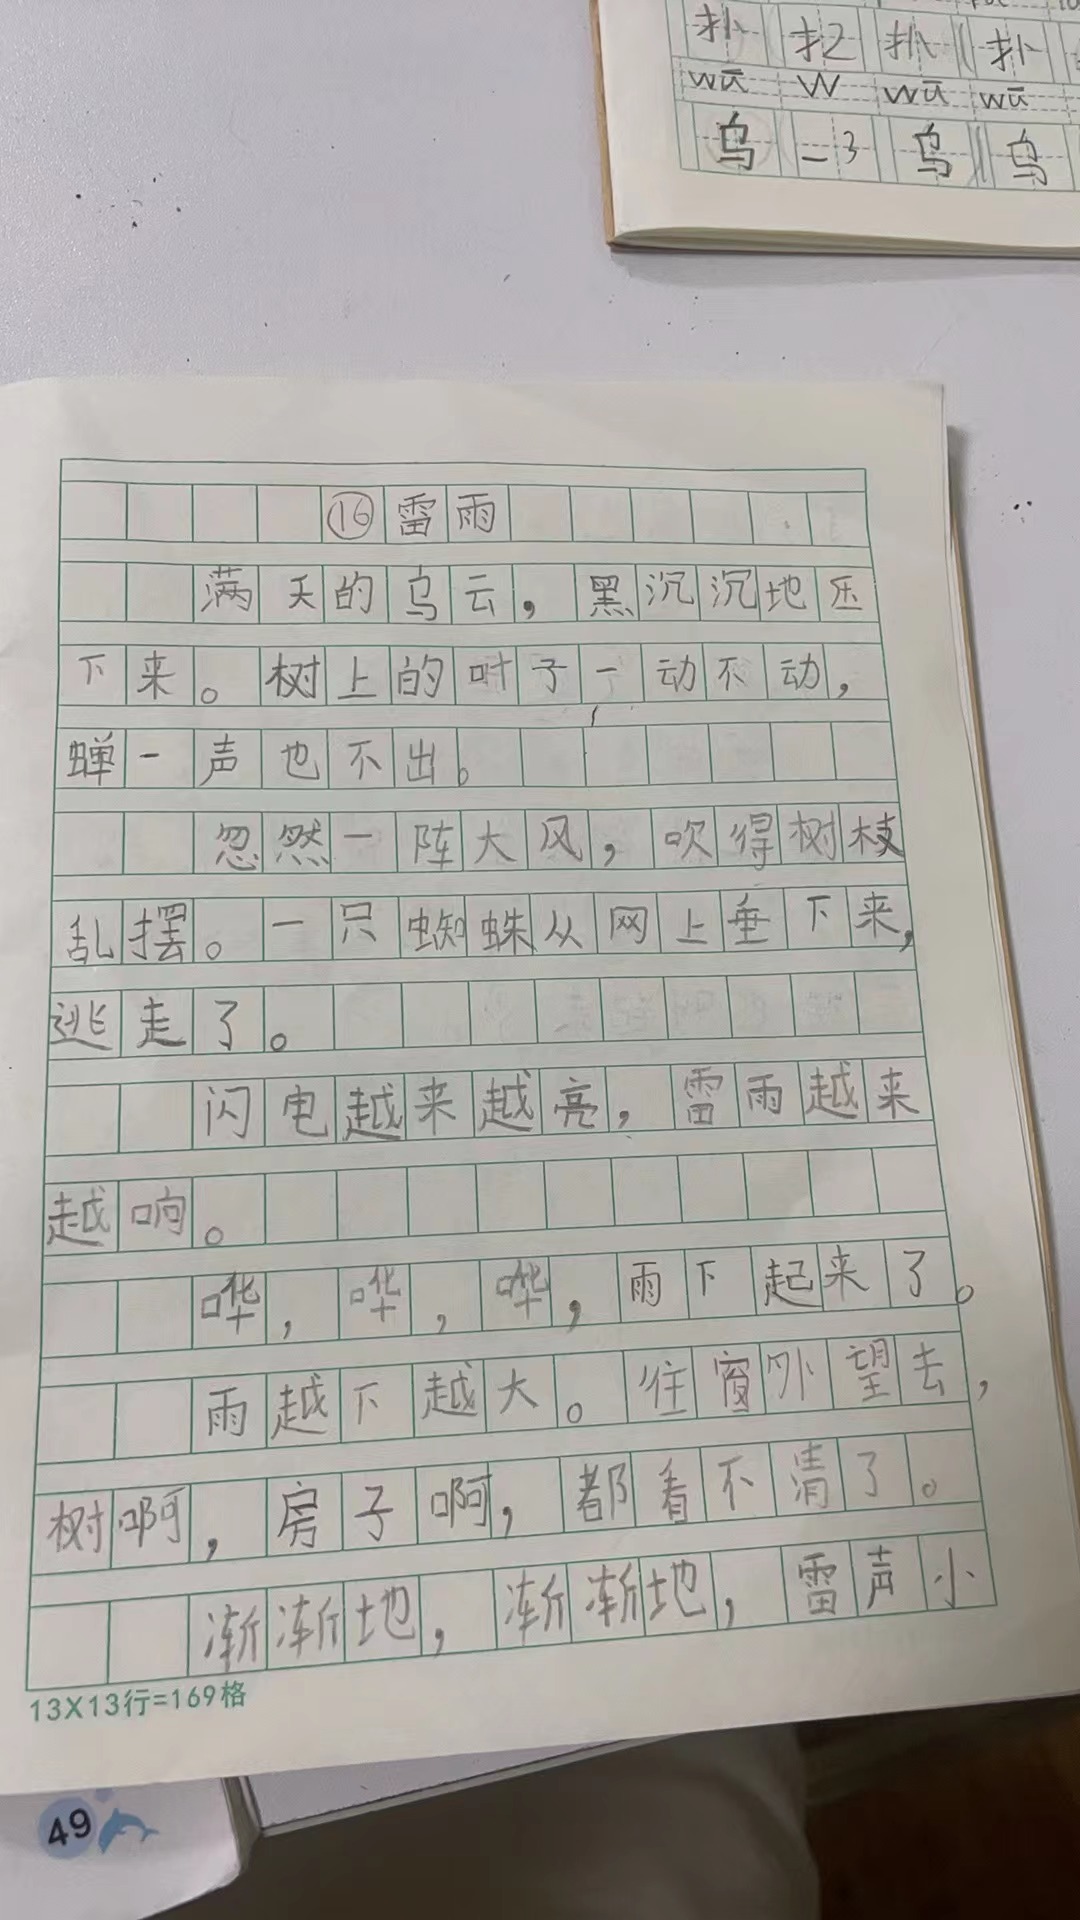 扑 扑 扑
wū w wū wū
乌 一 3 乌 乌
⑯雷雨
满天的乌云，黑沉沉地压
下来。树上的叶子一动不动，
蝉一声也不出。
忽然一阵大风，吹得树枝
乱摆。一只蜘蛛从网上垂下来，
逃走了。
闪电越来越亮，雷雨越来
越响。
哗，哗，哗，雨下起来了。
雨越下越大。往窗外望去，
树啊，房子啊，都看不清了。
渐渐地，渐渐地，雷声小
13X13行=169格
49